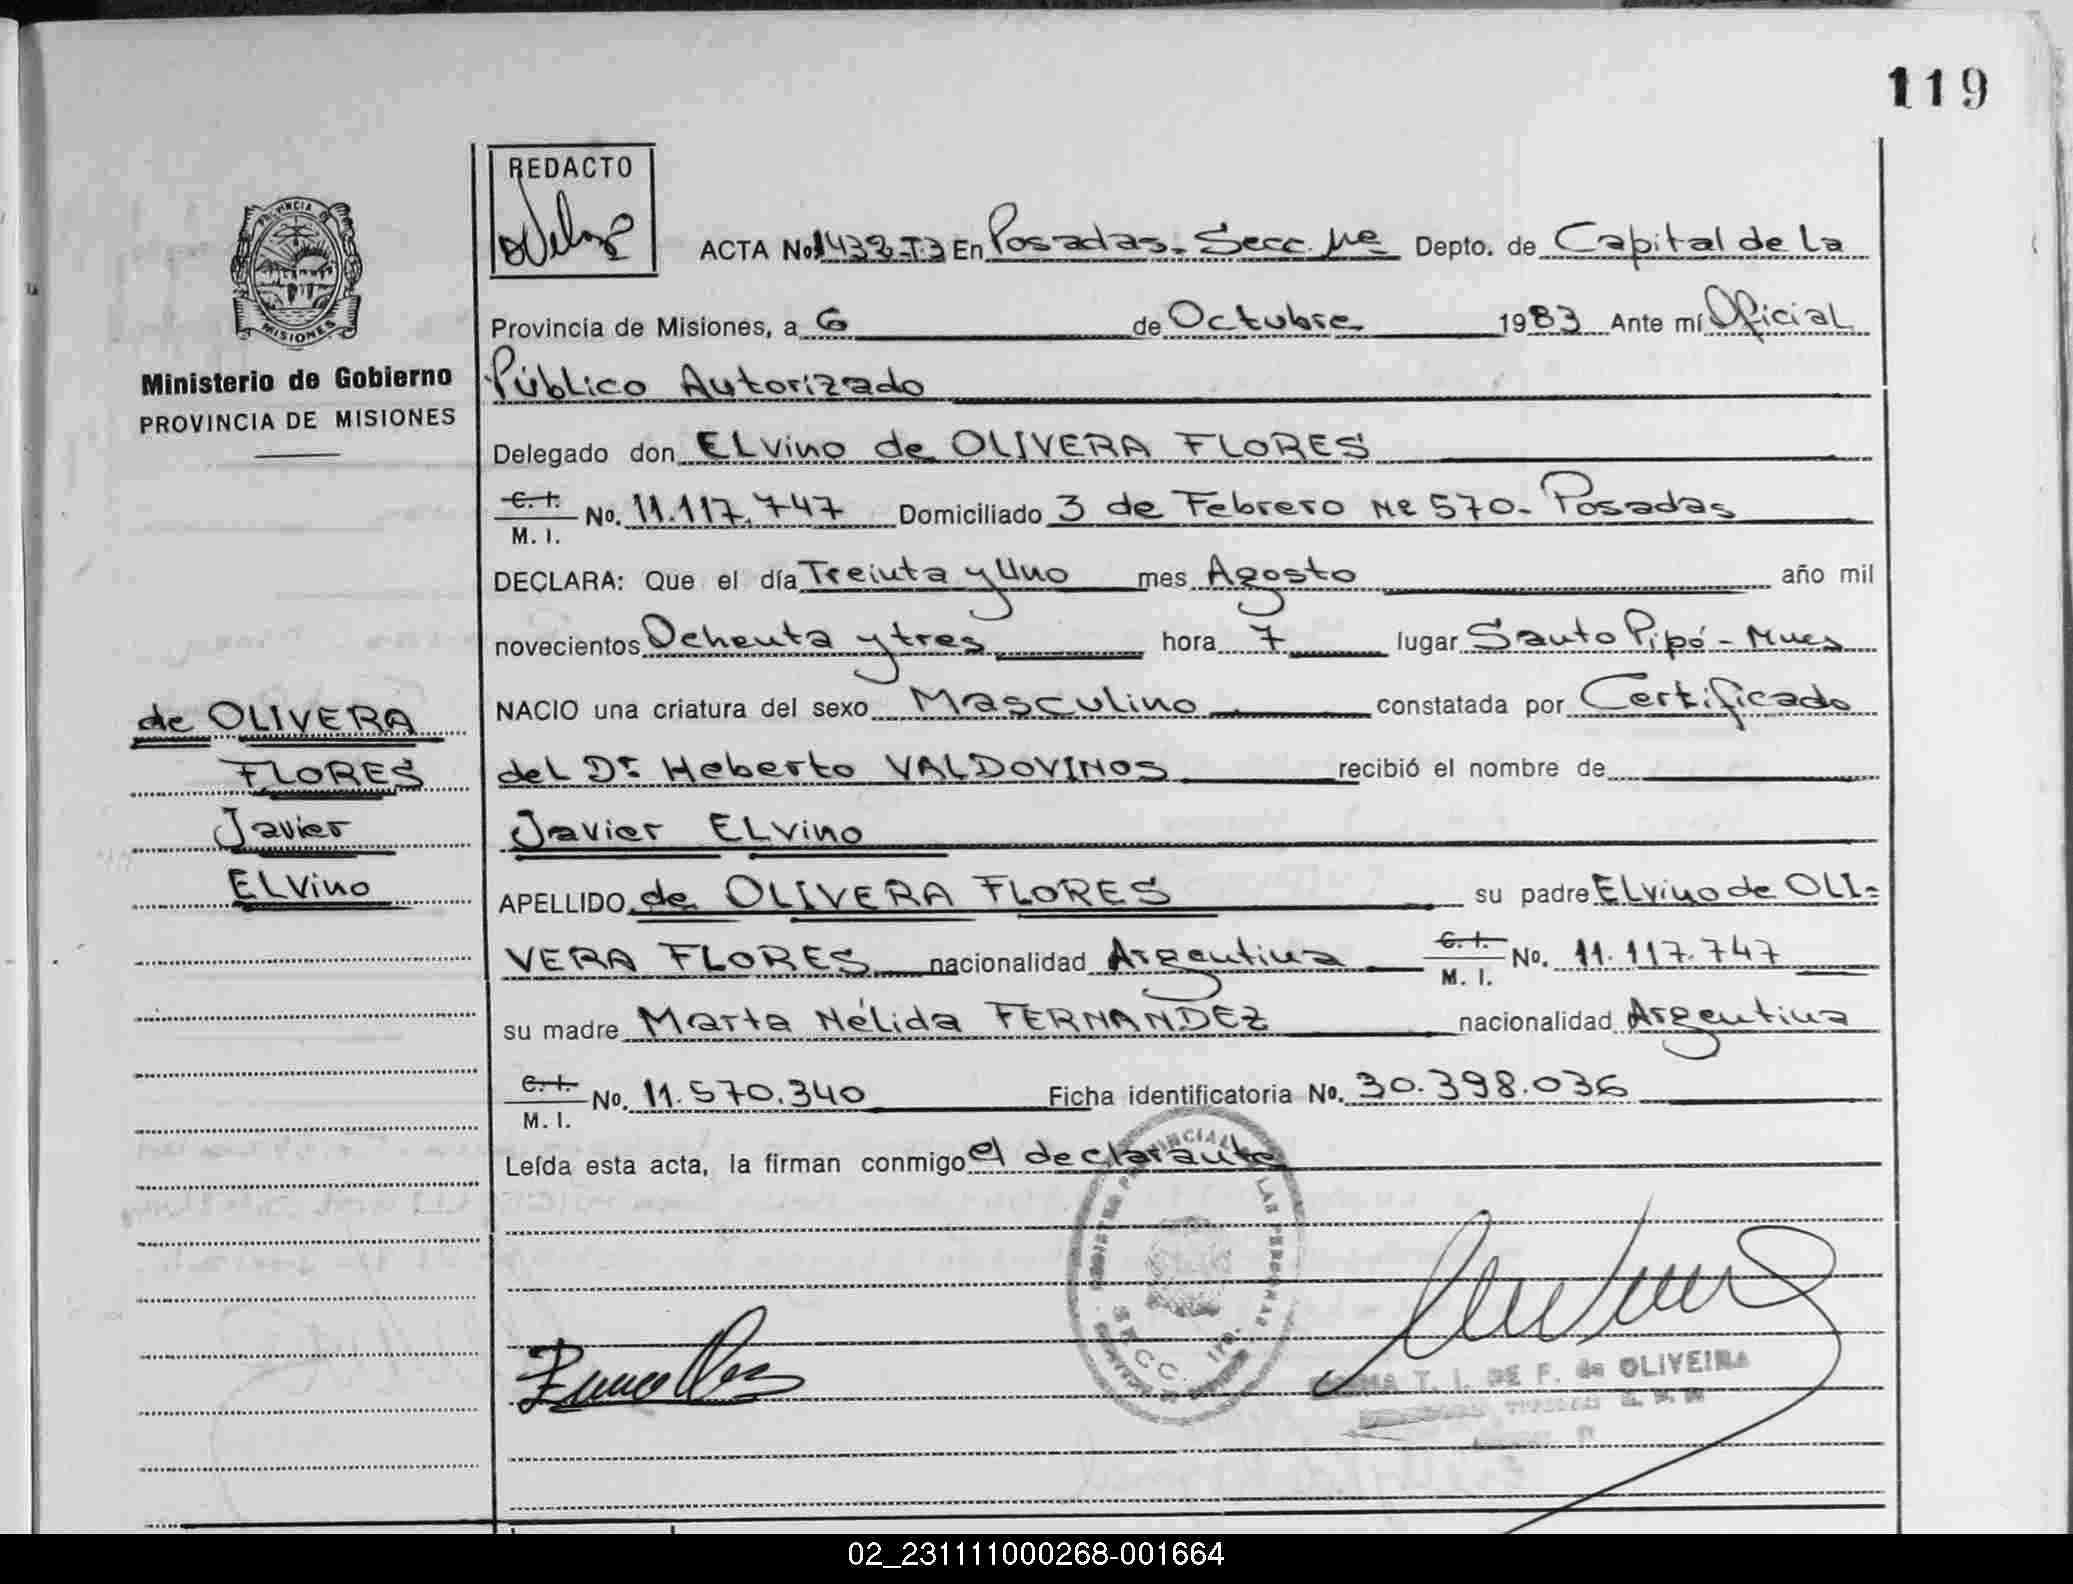 119
REDACTO
ACTA No 1432-T3 En Posadas. Secc. 1ra Depto. de Capital de la
PROVINCIA DE
MISIONES
Provincia de Misiones, a 6 de Octubre 1983 Ante mí Oficial
Ministerio de Gobierno
PROVINCIA DE MISIONES
Público Autorizado
Delegado don ELvino de OLIVERA FLORES
C. I. M. I. No. 11.117.747 Domiciliado 3 de Febrero Nº 570- Posadas
DECLARA: Que el día Treinta y Uno mes Agosto año mil
novecientos Ochenta y tres hora 7 lugar Santo Pipó - Mnes
NACIO una criatura del sexo Masculino constatada por Certificado
de OLIVERA
FLORES
Javier
ELvino
del Dr. Heberto VALDOVINOS recibió el nombre de
Javier ELvino
APELLIDO de OLIVERA FLORES su padre ELvino de OLI=
VERA FLORES nacionalidad Argentina C. I. M. I. No. 11.117.747
su madre Marta Nélida FERNANDEZ nacionalidad Argentina
C. I. M. I. No. 11.570.340 Ficha identificatoria No. 30.398.036
Leída esta acta, la firman conmigo el declarante
T. I. DE F. de OLIVEIRA
02_231111000268-001664